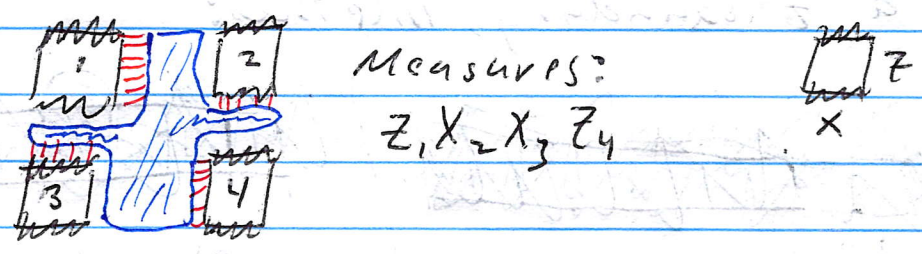 1
2
Measures:
Z₁X₂X₃Z₄
3
4
Z
X